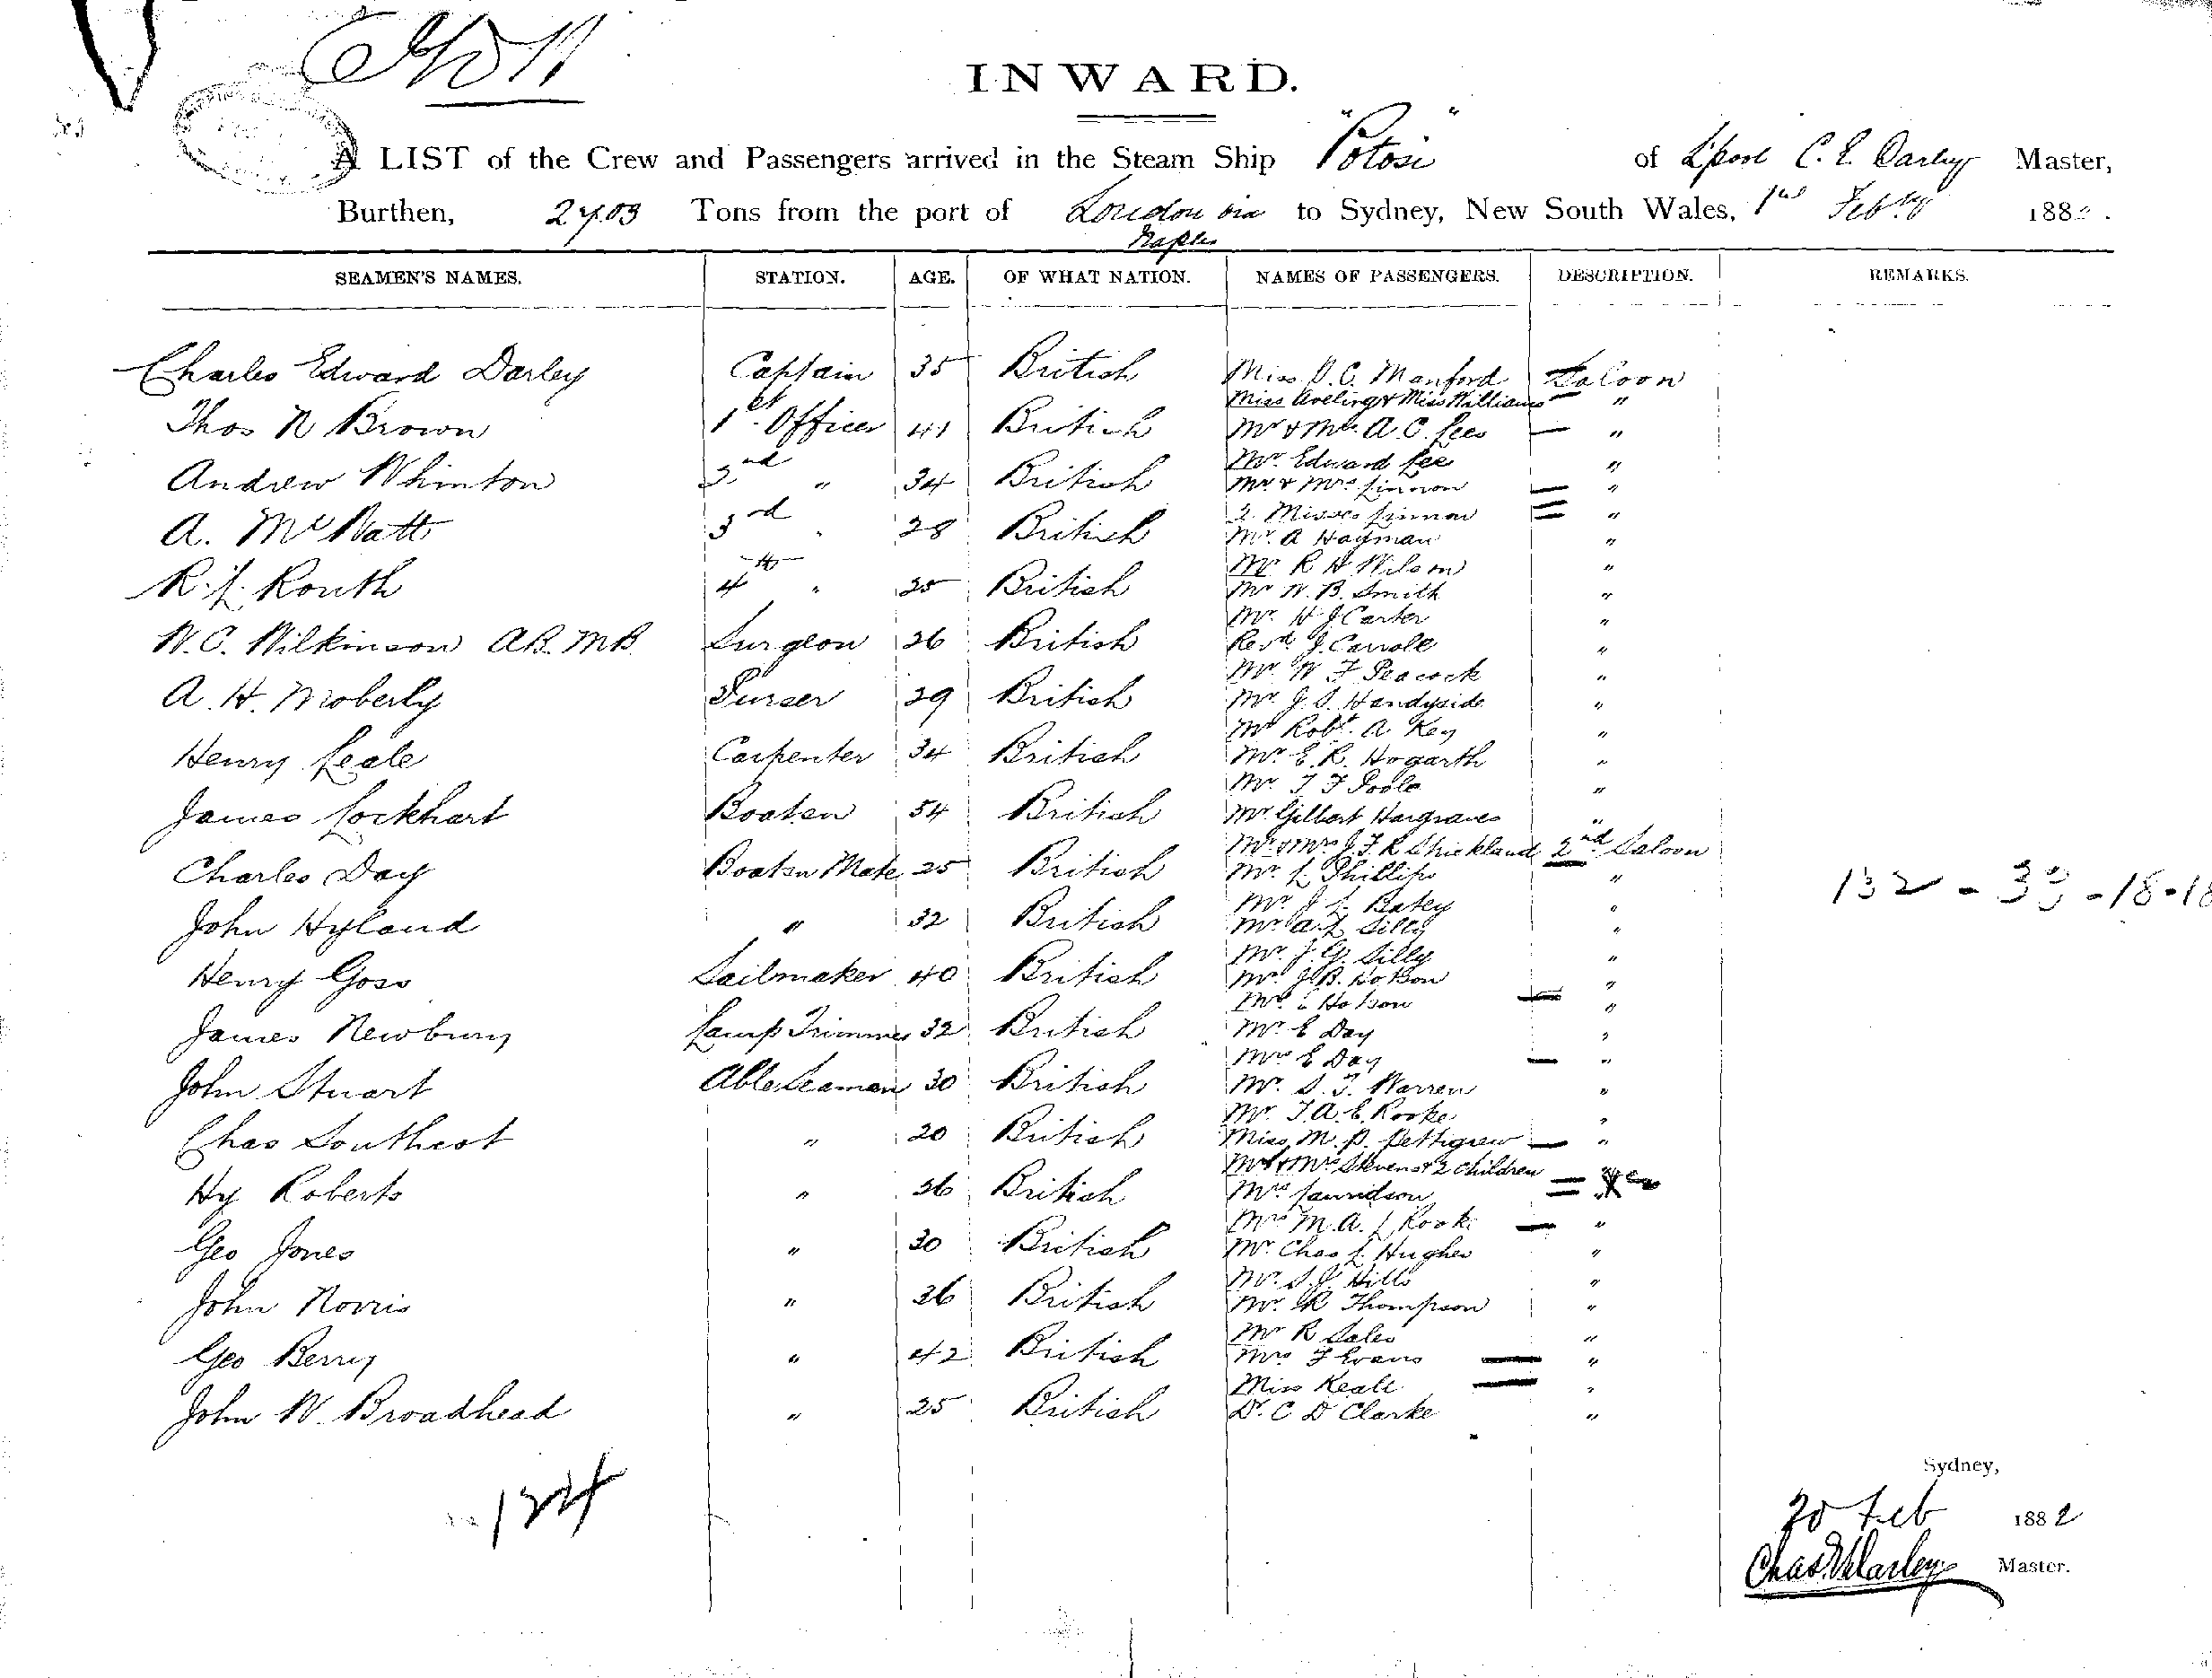 INWARD.
A LIST of the Crew and Passengers arrived in the Steam Ship "Potosi" of L'pool C. E. Darley Master,
Burthen, 2703 Tons from the port of London via Naples to Sydney, New South Wales, 1st Feby 188
SEAMEN'S NAMES. STATION. AGE. OF WHAT NATION. NAMES OF PASSENGERS. DESCRIPTION. REMARKS.
Charles Edward Darley Captain 35 British Miss D. C. Manford Saloon
Miss Aveling & Miss Williams "
Thos N Brown 1st Officer 41 British Mr & Mrs A. C. Lees "
Mr. Edward Lee "
Andrew Whinton 2nd " 34 British Mr & Mrs "
2 Misses "
A. Mc Watt 3rd " 28 British Mr. A Hayman "
Mr R H Wilson "
R. J. Routh 4th " 25 British Mr W. B. Smith "
Mr. H J Carter "
W. C. Wilkinson A.B. M.B. Surgeon 26 British Revd J. Carroll "
Mr W F Peacock "
A. H. Moberly Purser 29 British Mr J. S. Handyside "
Mr Robt. A Key "
Henry Leale Carpenter 34 British Mr. E. R. Hogarth "
Mr. T F Poole "
James Lockhart Boatsn 54 British Mr. Gilbert Hargraves "
Mr & Mrs J. F. R Strickland 2nd Saloon
Charles Day Boatsn Mate 25 British Mr. L. Phillips "
Mr J L Batey "
John Hyland " 32 British Mr. A. L Silly "
Mr. J. G. Silly "
Henry Goss Sailmaker 40 British Mr. J. B. Hobson "
Hobson "
James Newbury Lamp Trimmer 32 British Mr. E Day "
Mrs E Day "
John Stuart Able Seaman 30 British Mr. S. T. Warren "
Mr. T. A. E. Rooke "
Chas Southcot " 20 British Miss M. P. Pettigrew "
Mr & Mrs Stevens & 2 children
Hy Roberts " 36 British Mrs
Mrs M. A. L Rooke "
Geo Jones " 30 British Mr Chas L. Hughes "
Mr. S. J. Hills "
John Norris " 36 British Mr. R Thompson "
Mr R Sales "
Geo Berry " 42 British Mrs F Evans "
Miss Keall "
John W. Broadhead " 25 British Dr. C D Clarke "
132 - 33 - 18 - 18
124
Sydney,
20 Feb 1882
Chas E Darley Master.